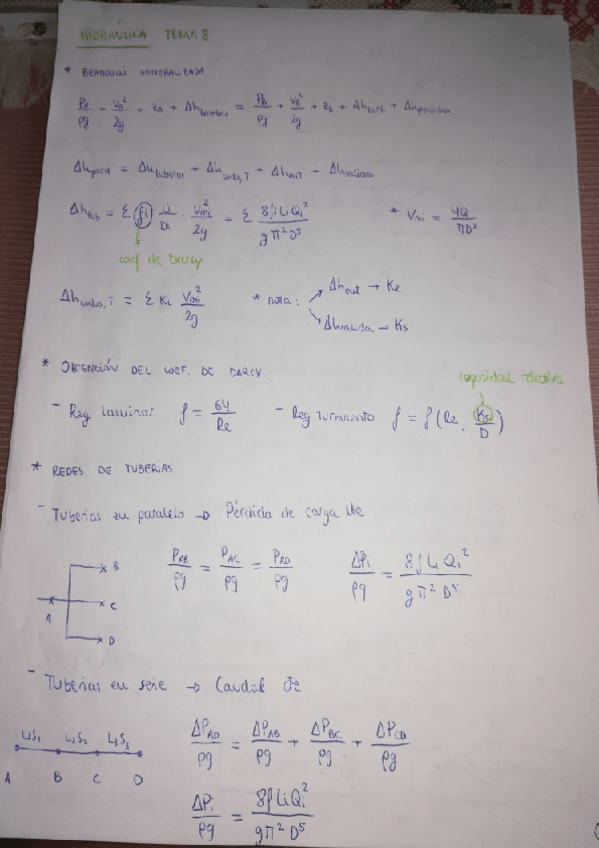 HIDRAULICA TEMA 8
* BERNOULLI GENERALIZADA
P_A/ρg + V_A²/2g + z_A + Δh_bombas = P_B/ρg + V_B²/2g + z_B + Δh_turb + Δh_perdidas
Δh_perd = Δh_tuberias + Δh_codo,T + Δh_ent + Δh_salidas
Δh_tub = Σ fi Li/Di · Vmi²/2g = Σ 8 fi Li Qi²/gπ²D⁵ * Vmi = 4Q/πD²
coef de Darcy
Δh_codos,T = Σ Ki Vmi²/2g * nota: Δh_ent → Ke
Δh_salida → Ks
* OBTENCIÓN DEL COEF. DE DARCY.
rugosidad relativa
- Reg laminar f = 64/Re - Reg turbulento f = f(Re, Ks/D)
* REDES DE TUBERIAS
- Tuberias en paralelo → Pérdida de carga cte
A B C D
P_AB/ρg = P_AC/ρg = P_AD/ρg ΔPi/ρg = 8f Li Qi²/gπ²D⁵
- Tuberias en serie → Caudal cte
L1S1 L2S2 L3S3
A B C D
ΔP_AD/ρg = ΔP_AB/ρg + ΔP_BC/ρg + ΔP_CD/ρg
ΔPi/ρg = 8f Li Qi²/gπ²D⁵